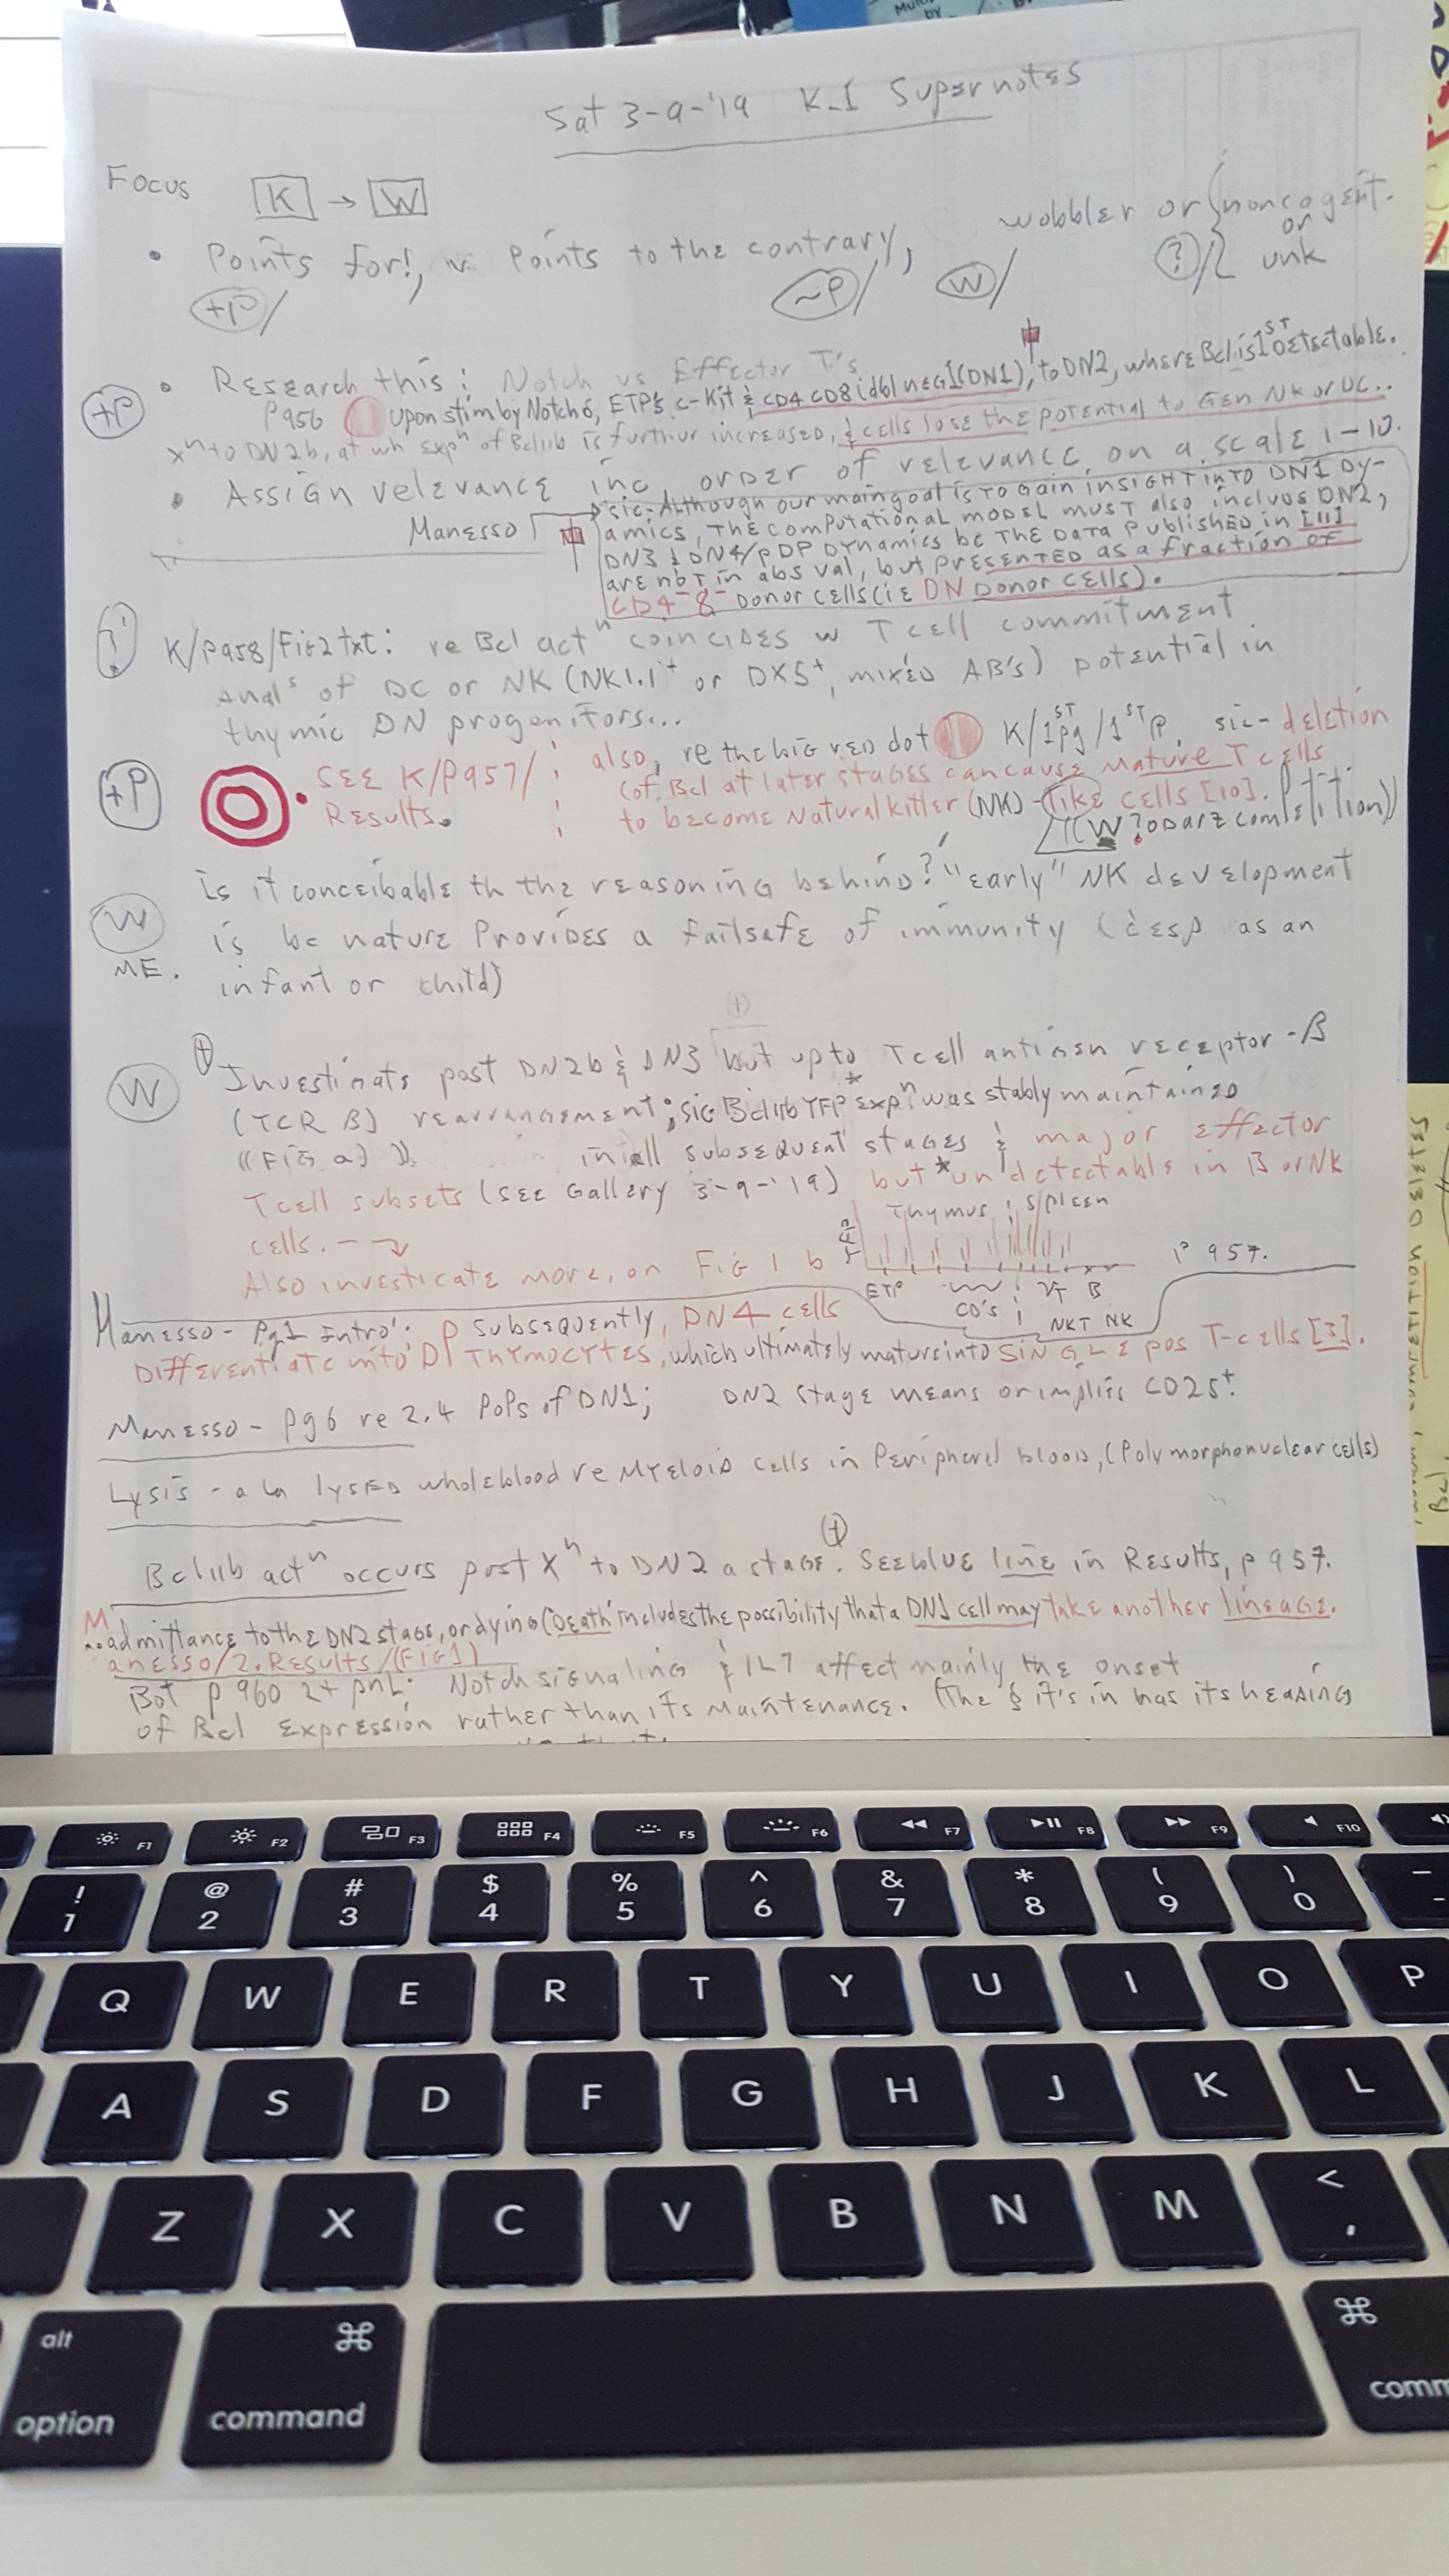 Sat 3-9-'19 K-I Supernotes
Focus K → W
• Points for!, v. Points to the contrary, wobbler or noncogent.
or
+P/ ~P/ W/ ?/ unk
+P • Research this: Notch vs Effector T's
P956 Upon stim by Notch 6, ETP's c-Kit & CD4 CD8 (dbl nEG1(DN1), to DN2, where Bcl is 1ST Detectable.
Xn to DN2b, at wh expn of Bcl11b is further increased, & cells lose the potential to Gen NK or DC..
• Assign relevance inc order of relevance, on a scale 1-10.
Manesso
sic-Although our main goal is to gain insight into DN1 Dy-
amics, The computational model must also include DN2,
DN3 & DN4/pDP Dynamics bc the Data published in [11]
are not in abs val, but presented as a fraction of
CD4-8- Donor cells (ie DN Donor cells).
K/P958/Fig2txt: re Bcl actn coincides w T cell commitment
anals of DC or NK (NK1.1+ or DX5+, mixed AB's) potential in
thymic DN progenitors...
+P • SEE K/P957/ Results.
also, re the big red dot K/1ST pg/1ST P. sic- deletion
(of Bcl at later stages can cause mature T cells
to become Natural killer (NK)-like cells [10].
(W? Darz competition))
W ME. is it conceibable th the reasoning behind? "early" NK development
is bc nature Provides a failsafe of immunity (esp as an
infant or child)
W Investigate post DN2b & DN3 but upto T cell antigen receptor-B
(TCR B) rearrangement; sic Bcl11b YFP expn was stably maintained
((Fig a)) in all subsequent stages & major effector
T cell subsets (see Gallery 3-9-'19) but *undetectable in B or NK
cells.
Thymus Spleen
Also investigate more, on Fig 1 b P 957.
ETP CD's γT B
NKT NK
Manesso- Pg1 Intro: Subsequently, DN4 cells
Differentiate into DP Thymocytes, which ultimately mature into SINGLE pos T-cells [3].
Manesso- Pg6 re 2.4 Pops of DN1; DN2 stage means or implies CD25+.
Lysis - a la lysed wholeblood re Myeloid cells in Peripheral blood, (Polymorphonuclear cells)
Bcl11b actn occurs post Xn to DN2a stage. See blue line in Results, p 957.
M ..admittance to the DN2 stage, or dying (Death' includes the possibility that a DN1 cell may take another lineage.
anesso/2. Results/(Fig1)
Bot p 960 Notch signaling & IL7 affect mainly the onset
of Bcl Expression rather than its maintenance. (The § it's in has its heading
! 1
@ 2
# 3
$ 4
% 5
^ 6
& 7
* 8
( 9
) 0
F1 F2 F3 F4 F5 F6 F7 F8 F9 F10
Q W E R T Y U I O P
A S D F G H J K L
Z X C V B N M < ,
alt option
⌘ command
⌘ comm